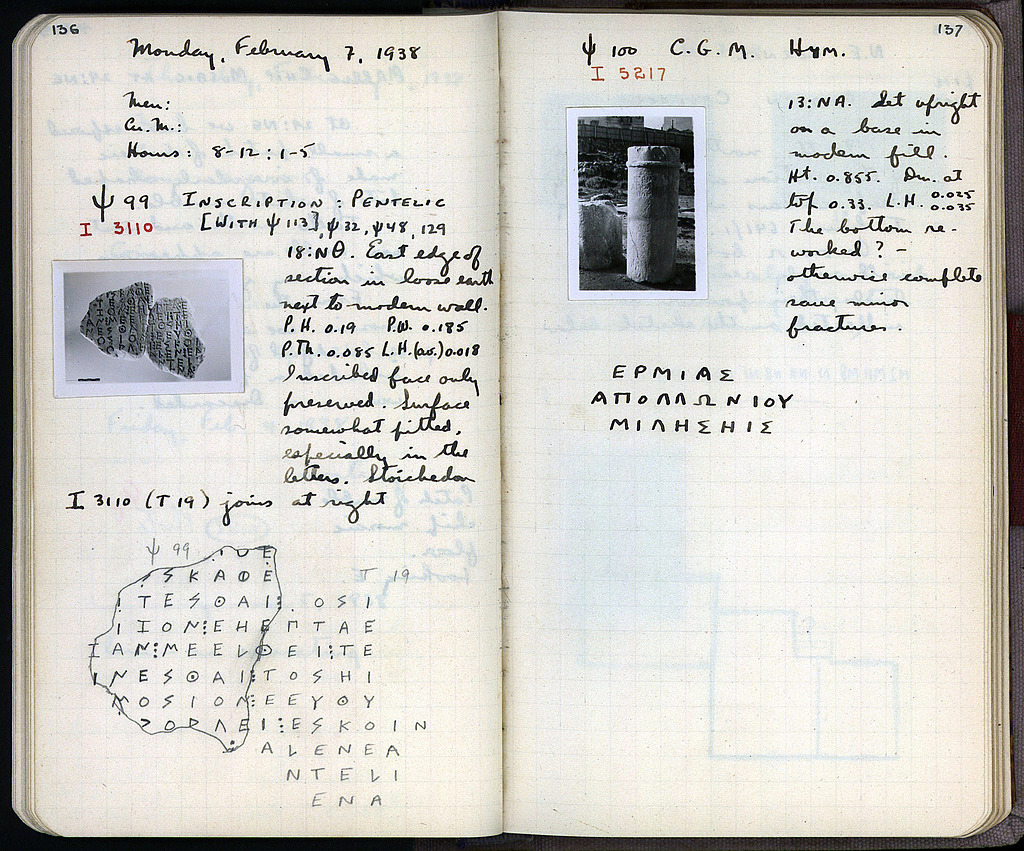 136
Monday, February 7, 1938
Men:
Cu. M.:
Hours: 8-12; 1-5
Ψ 99 INSCRIPTION: PENTELIC
I 3110 [WITH Ψ 113], Ψ 32, Ψ 48, 129
18:ΝΘ. East edge of
section in loose earth
next to modern wall.
P.H. 0.19 P.W. 0.185
P.Th. 0.085 L.H.(av.) 0.018
Inscribed face only
preserved. Surface
somewhat pitted,
especially in the
letters. Stoichedon
I 3110 (T 19) joins at right
Ψ 99
T 19
ΣΚΑΦΕ
ΙΤΕΣΘΑΙ⋮.ΟΣΙ
ΙΙΟΝ⋮ΕΗΕΠΤΑΕ
ΙΑΝ⋮ΜΕΕLΘΕΙ⋮ΤΕ
ΙΝΕΣΘΑΙ⋮ΤΟΣΗΙ
ΜΟΣΙΟΝ⋮ΕΕΥΘΥ
ΕΣΚΟΙΝ
ΑLΕΝΕΑ
ΝΤΕLΙ
ΕΝΑ
137
Ψ 100 C.G.M. Hym.
I 5217
13:ΝΛ. Set upright
on a base in
modern fill.
Ht. 0.855. Dm. at
top 0.33. L.H. 0.025
0.035
The bottom re-
worked? –
otherwise complete
save minor
fractures
ΕΡΜΙΑΣ
ΑΠΟΛΛΩΝΙΟΥ
ΜΙΛΗΣΗΙΣ